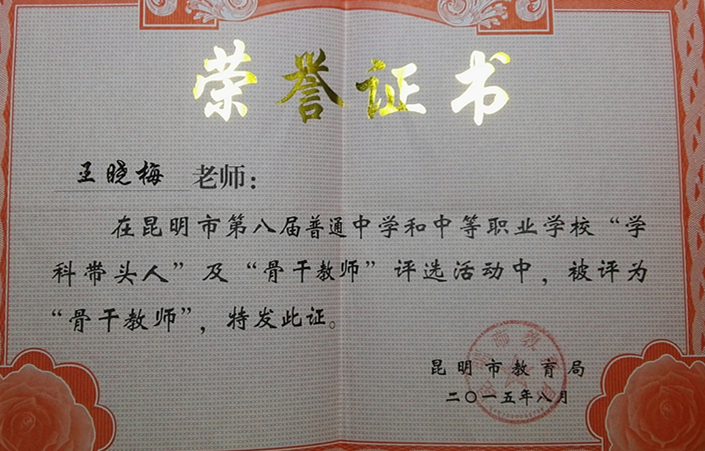 荣誉证书
王晓梅 老师：
在昆明市第八届普通中学和中等职业学校“学
科带头人”及“骨干教师”评选活动中，被评为
“骨干教师”，特发此证。
昆明市教育局
二〇一五年八月